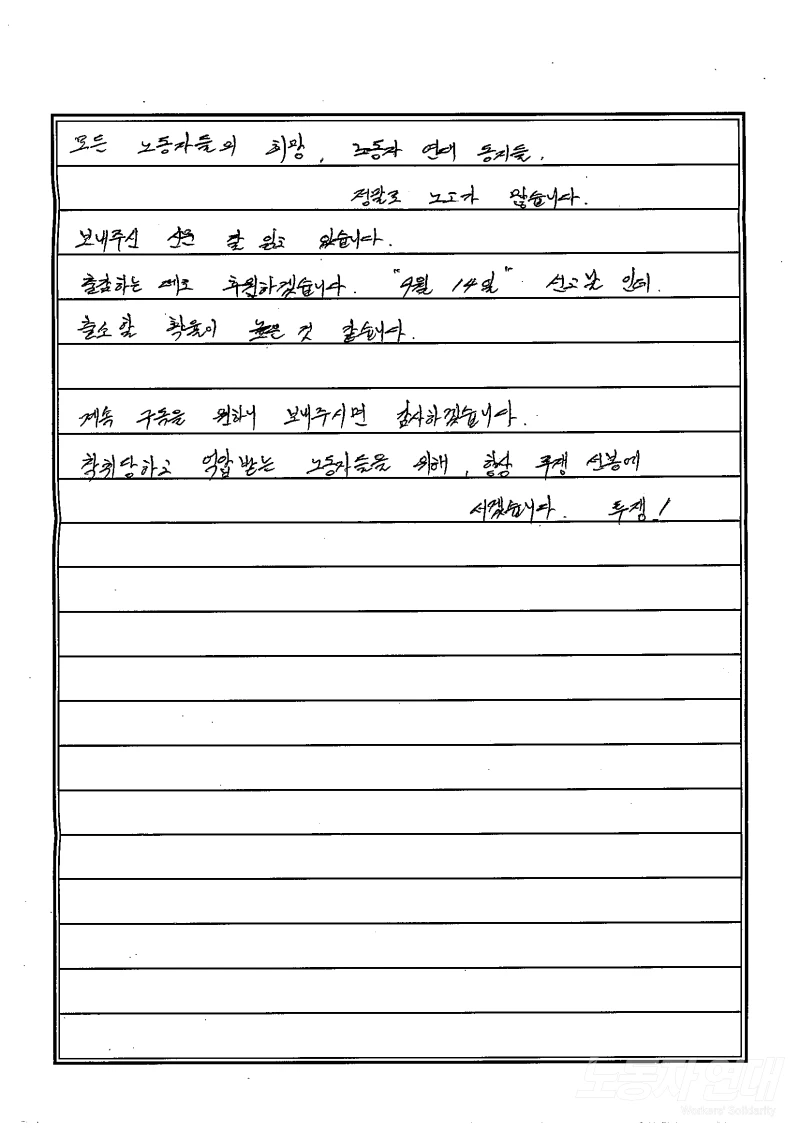 모든 노동자들의 희망, 노동자 연대 동지들.
정말로 노고가 많습니다.
보내주신 신문 잘 읽고 있습니다.
출감하는 대로 후원하겠습니다. "4월 14일" 선고날 인데.
출소할 확율이 높은 것 같습니다.
계속 구독을 원하니 보내주시면 감사하겠습니다.
착취당하고 억압받는 노동자들을 위해, 항상 투쟁 선봉에
서겠습니다. 투쟁!
노동자 연대
Workers' Solidarity